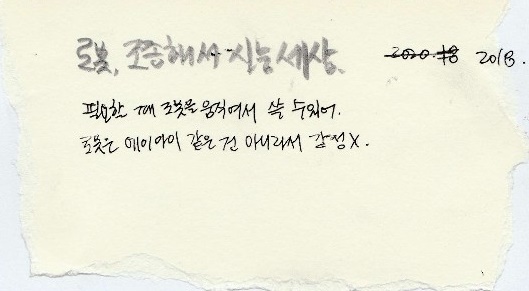 로봇, 조종해서 사는 세상. 2013.
필요한 때 로봇을 움직여서 쓸 수 있어.
로봇은 에이아이 같은 건 아니라서 감정X.